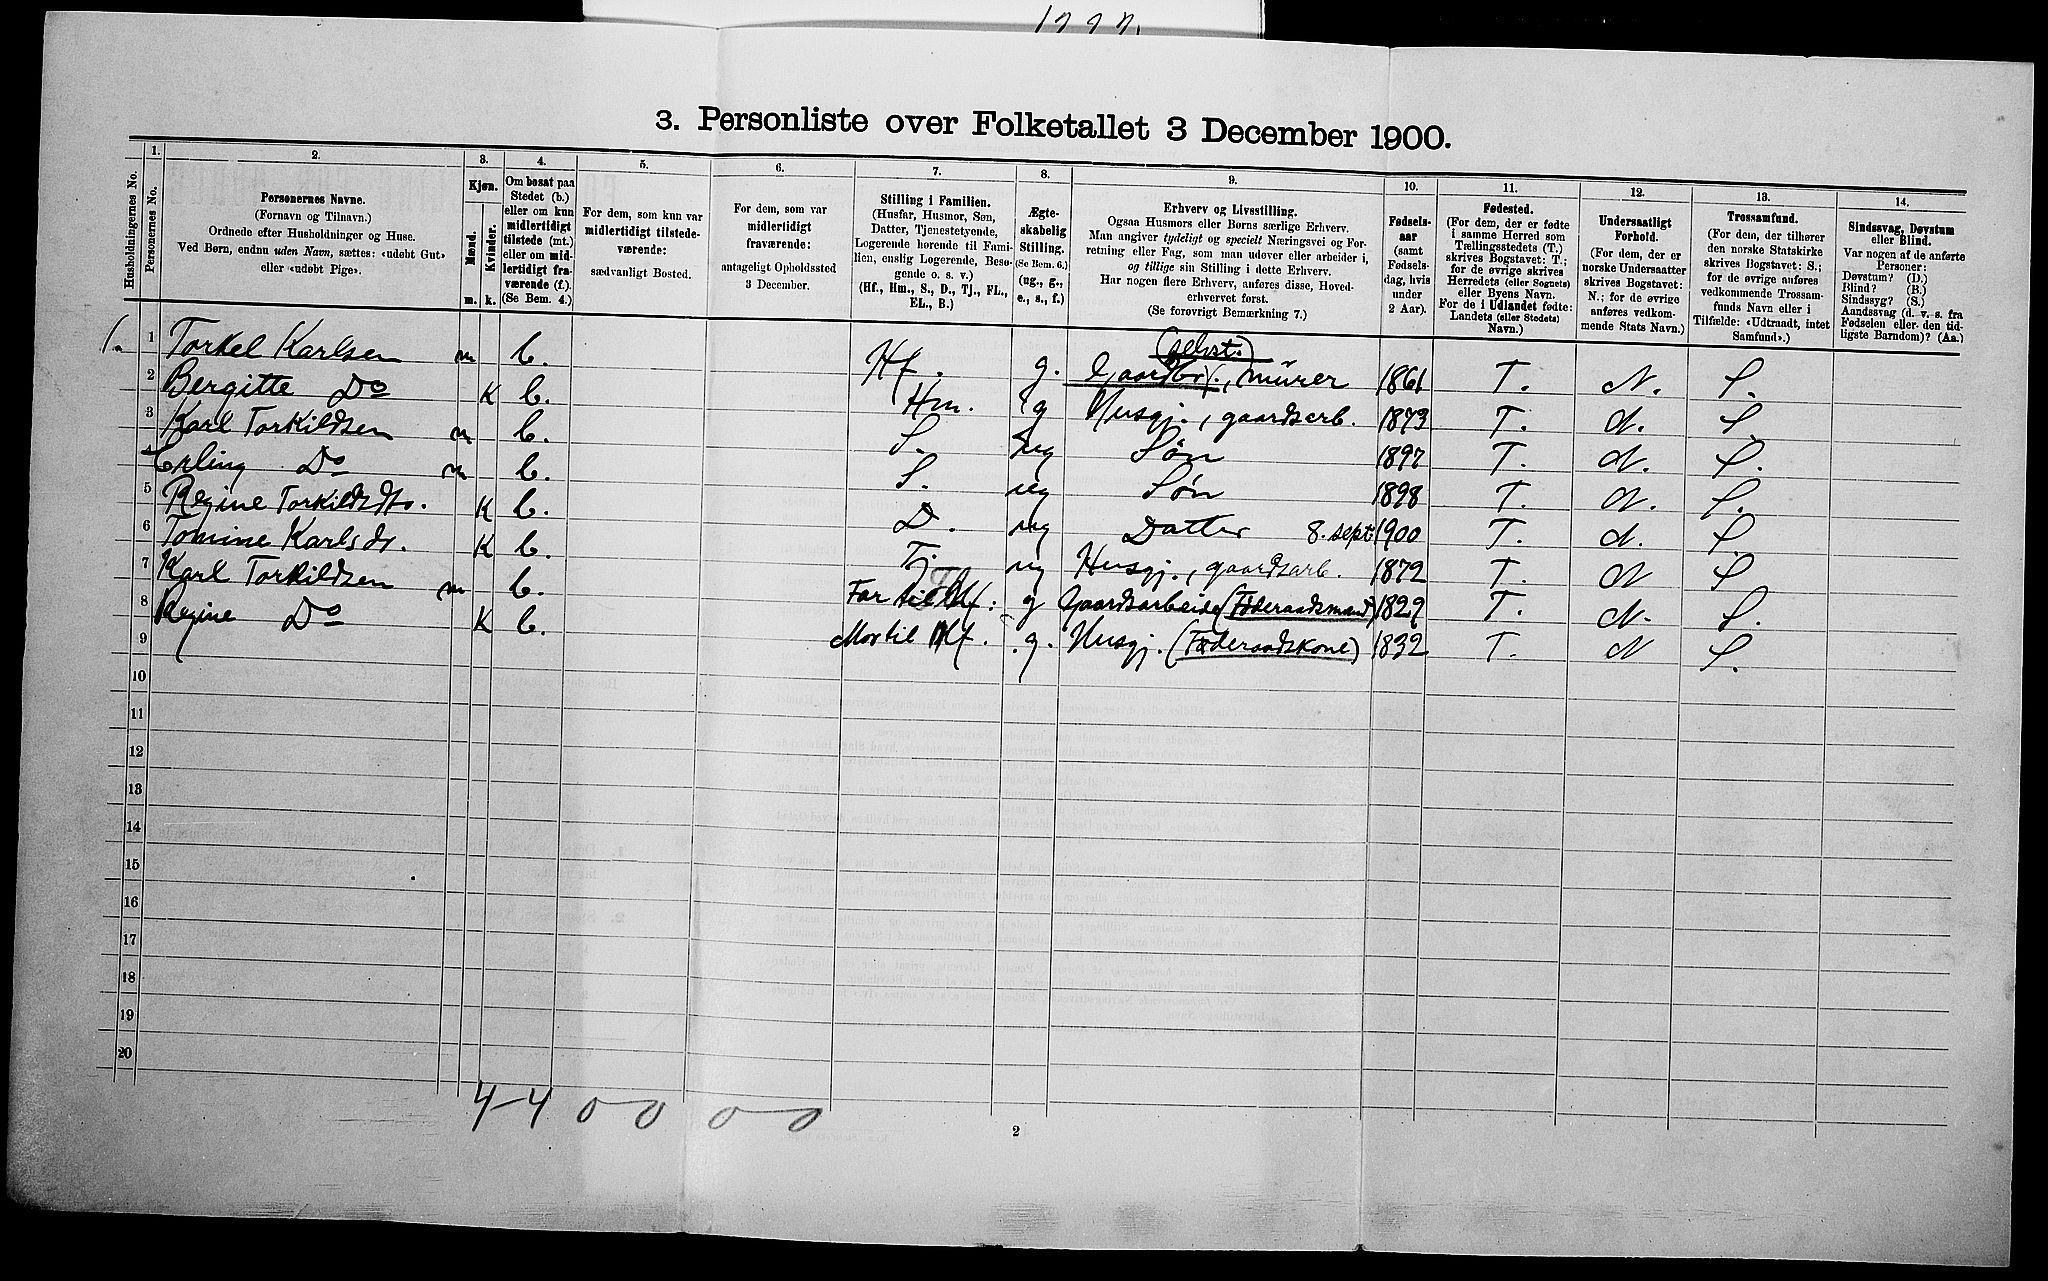 3. Personliste over Folketallet 3 December 1900.
1. 2. 3. 4. 5. 6. 7. 8. 9. 10. 11. 12. 13. 14.
Husholdningernes No.
Personernes No.
Personernes Navne.
(Fornavn og Tilnavn.)
Ordnede efter Husholdninger og Huse.
Ved Børn, endnu uden Navn, sættes: «udøbt Gut»
eller «udøbt Pige».
Kjøn.
Mænd.
Kvinder.
m. k.
Om bosat paa
Stedet (b.)
eller om kun
midlertidigt
tilstede (mt.)
eller om mid-
lertidigt fra-
værende (f.).
(Se Bem. 4.)
For dem, som kun var
midlertidigt tilstede-
værende:
sædvanligt Bosted.
For dem, som var
midlertidigt
fraværende:
antageligt Opholdssted
3 December.
Stilling i Familien.
(Husfar, Husmor, Søn,
Datter, Tjenestetyende,
Logerende hørende til Fami-
lien, enslig Logerende, Besø-
gende o. s. v.)
(Hf., Hm., S., D., Tj., FL.,
EL., B.)
Ægte-
skabelig
Stilling.
(Se Bem. 6.)
(ug., g.,
e., s., f.)
Erhverv og Livsstilling.
Ogsaa Husmors eller Børns særlige Erhverv.
Man angiver tydeligt og specielt Næringsvei og For-
retning eller Fag, som man udøver eller arbeider i,
og tillige sin Stilling i dette Erhverv.
Har nogen flere Erhverv, anføres disse, Hoved-
erhvervet først.
(Se forøvrigt Bemærkning 7.)
Fødsels-
aar
(samt
Fødsels-
dag, hvis
under
2 Aar).
Fødested.
(For dem, der er fødte
i samme Herred som
Tællingsstedets (T.)
skrives Bogstavet: T.;
for de øvrige skrives
Herredets (eller Sognets)
eller Byens Navn.
For de i Udlandet fødte:
Landets (eller Stedets)
Navn.)
Undersaatligt
Forhold.
(For dem, der er
norske Undersaatter
skrives Bogstavet:
N.; for de øvrige
anføres vedkom-
mende Stats Navn.)
Trossamfund.
(For dem, der tilhører
den norske Statskirke
skrives Bogstavet: S.;
for de øvrige anføres
vedkommende Trossam-
funds Navn eller i
Tilfælde: «Udtraadt, intet
Samfund».)
Sindssvag, Døvstum
eller Blind.
Var nogen af de anførte
Personer:
Døvstum? (D.)
Blind? (B.)
Sindssyg? (S.)
Aandssvag (d. v. s. fra
Fødselen eller den tid-
ligste Barndom)? (Aa.)
(selvst.)
1. 1 Torkel Karlsen m b. Hf. g. Gaardbr., murer 1861 T. N. S.
2 Bergitte Do K b. Hm. g Husgj., gaardsarb. 1873 T. N. S.
3 Karl Torkildsen m b. S. ug Søn 1897 T. N. S.
4 Erling Do m b. S. ug Søn 1898 T. N. S.
5 Regine Torkildsdtr. K b. D. ug Datter 8. sept 1900 T. N. S.
6 Tomine Karlsdr. K b. Tj ug Husgj., gaardsarb. 1872 T. N S
7 Karl Torkildsen m b. Far til Hf: g Gaardsarbeide (Føderaadsmand) 1829 T. N. S.
8 Regine Do K b. Mor til Hf. g. Husgj. (Føderaadskone) 1832 T. N S.
9
10
11
12
13
14
15
16
17
18
19
20
4-4 0 0 0-0
2